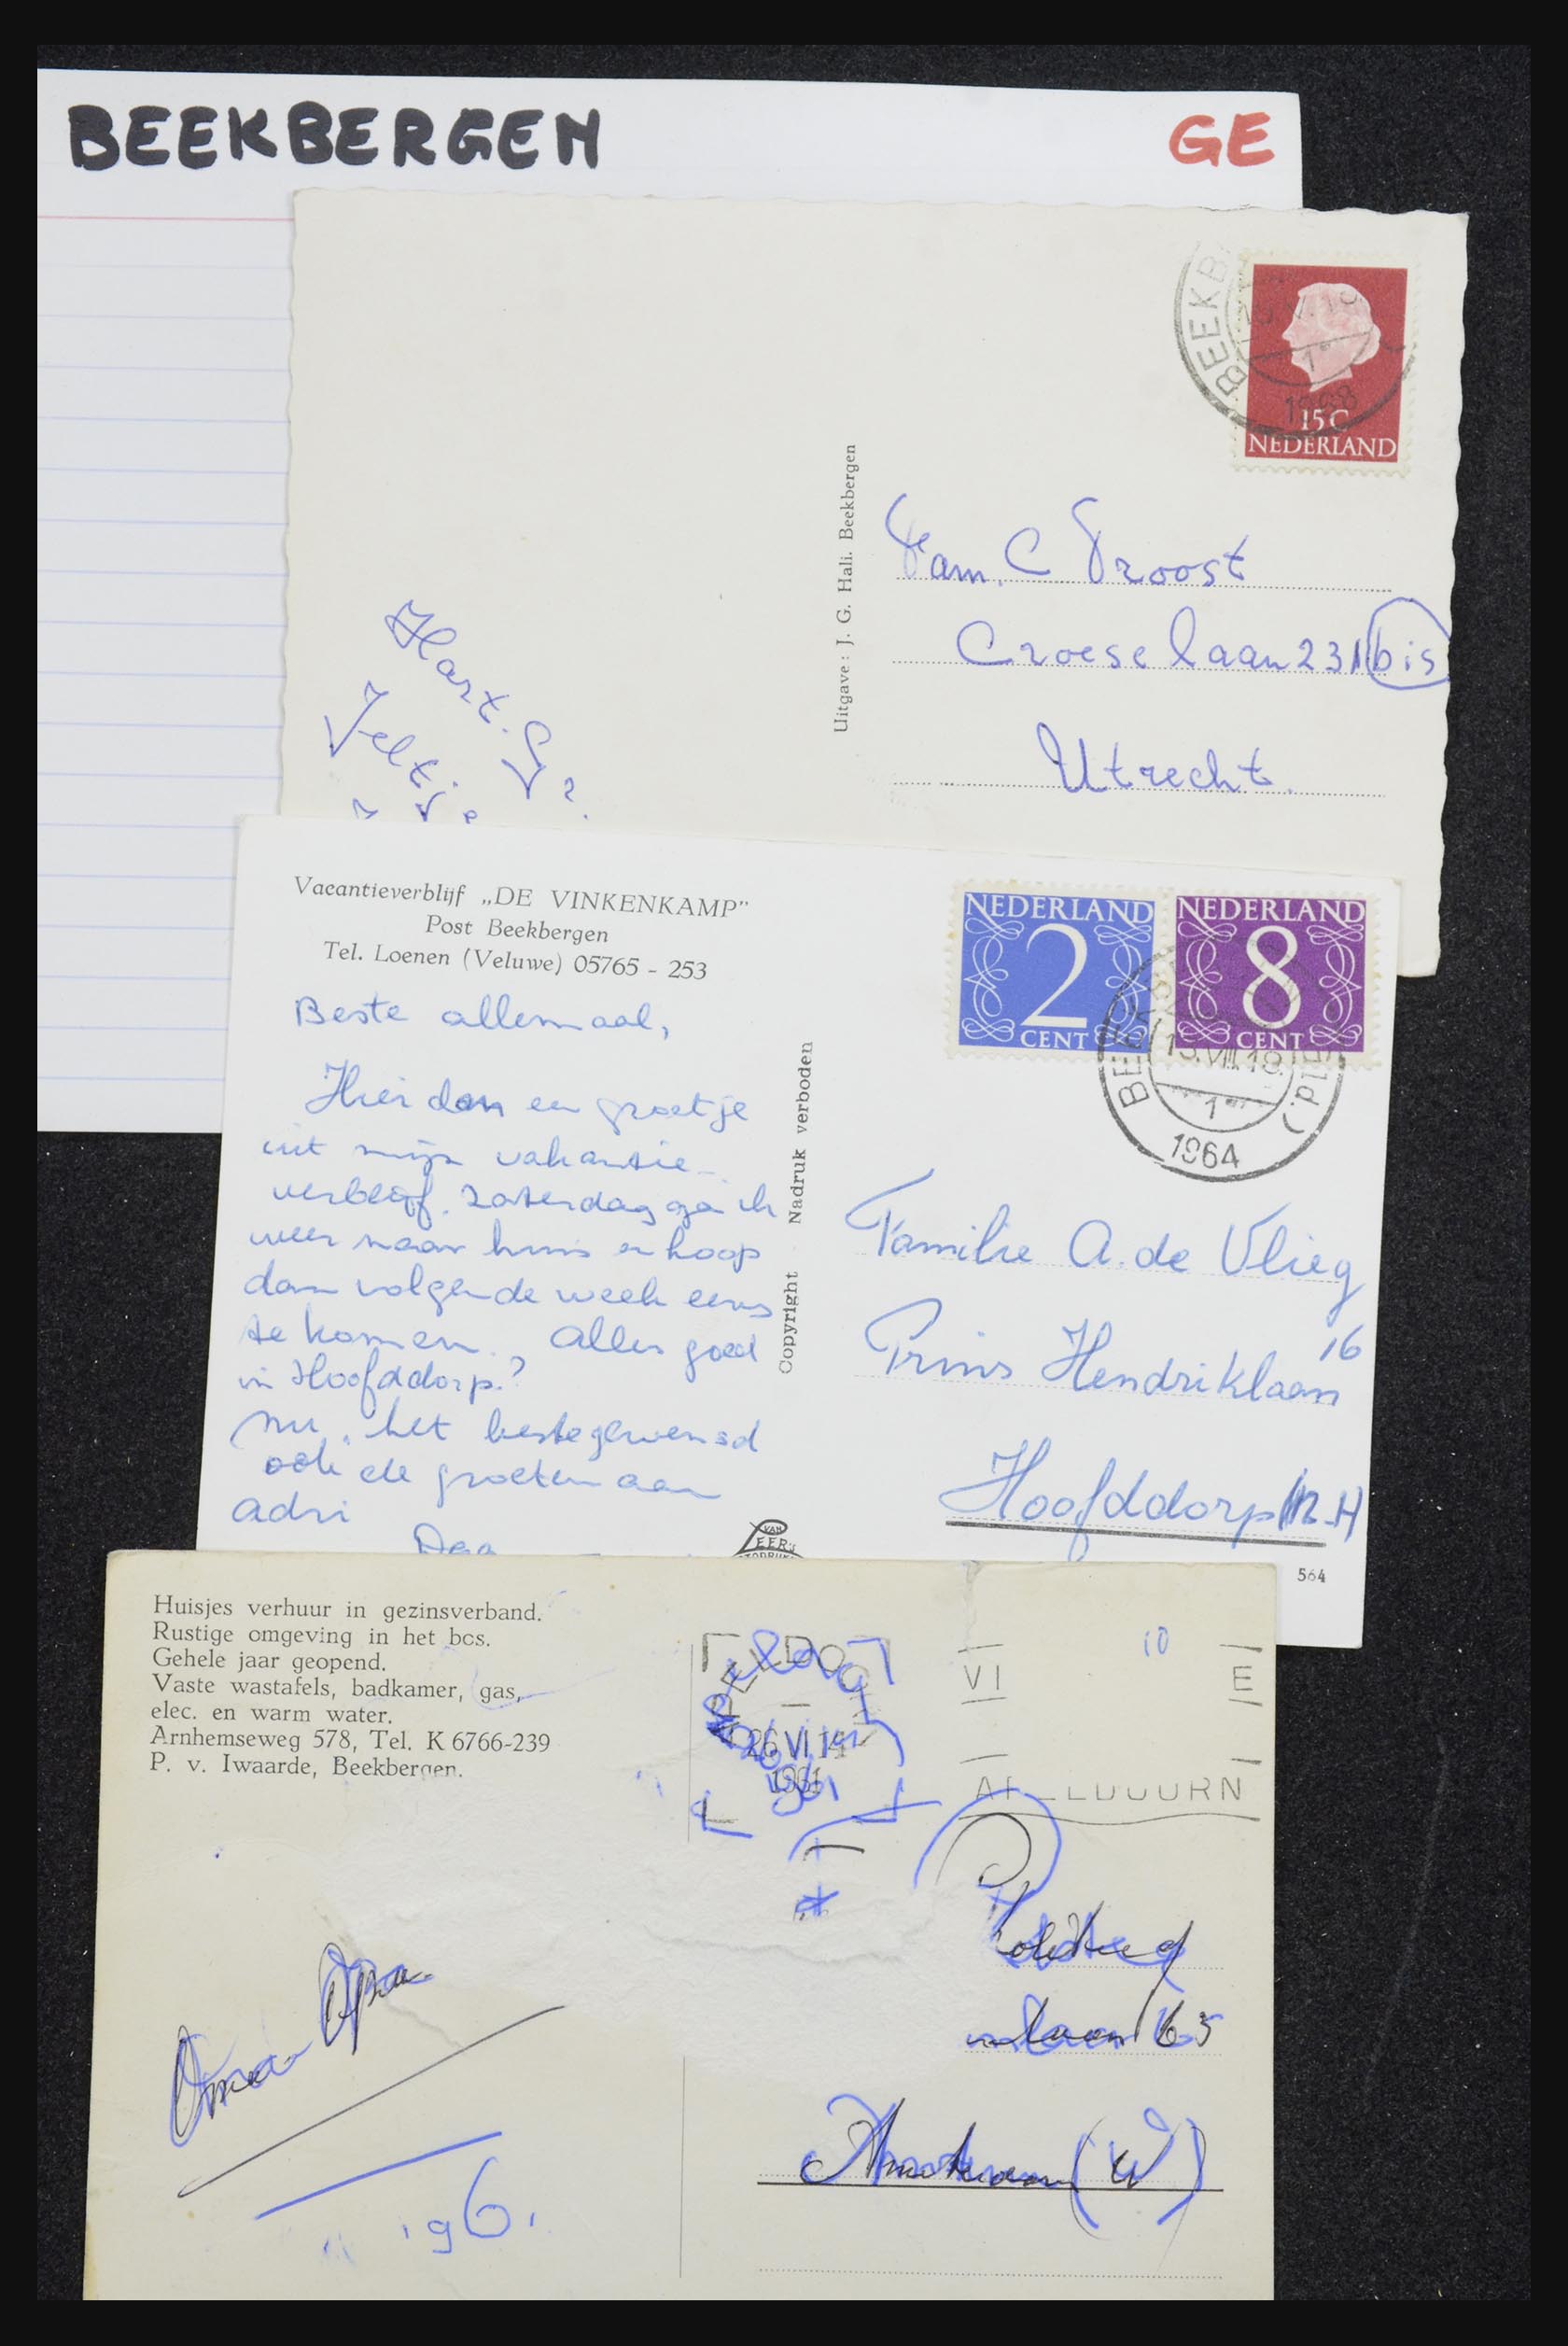 BEEKBERGEN
GE
BEEKB
1
1968
15 C
NEDERLAND
Uitgave: J. G. Hali. Beekbergen
Fam. C Proost
Croeselaan 231 bis
Utrecht.
Hart. Gr.
Jeltje
Vacantieverblijf „DE VINKENKAMP”
Post Beekbergen
Tel. Loenen (Veluwe) 05765 - 253
NEDERLAND
2
CENT
NEDERLAND
8
CENT
13.VIII.18.
1
1964
Beste allemaal,
Hier dan een groetje
uit mijn vakantie-
verblijf. Zaterdag ga ik
weer naar huis en hoop
dan volgende week eens
te komen. Alles goed
in Hoofddorp?
Nu, het beste gewensd
ook de groeten aan
Adri
Daa
Copyright Nadruk verboden
Familie A. de Vlieg
Prins Hendriklaan 16
Hoofddorp (N-H)
VAN LEER'S
564
Huisjes verhuur in gezinsverband.
Rustige omgeving in het bos.
Gehele jaar geopend.
Vaste wastafels, badkamer, gas,
elec. en warm water.
Arnhemseweg 578, Tel. K 6766-239
P. v. Iwaarde, Beekbergen.
26 VI 14
1961
10
VI E
laan 65
Amsterdam (W)
Oma Opa
'96.